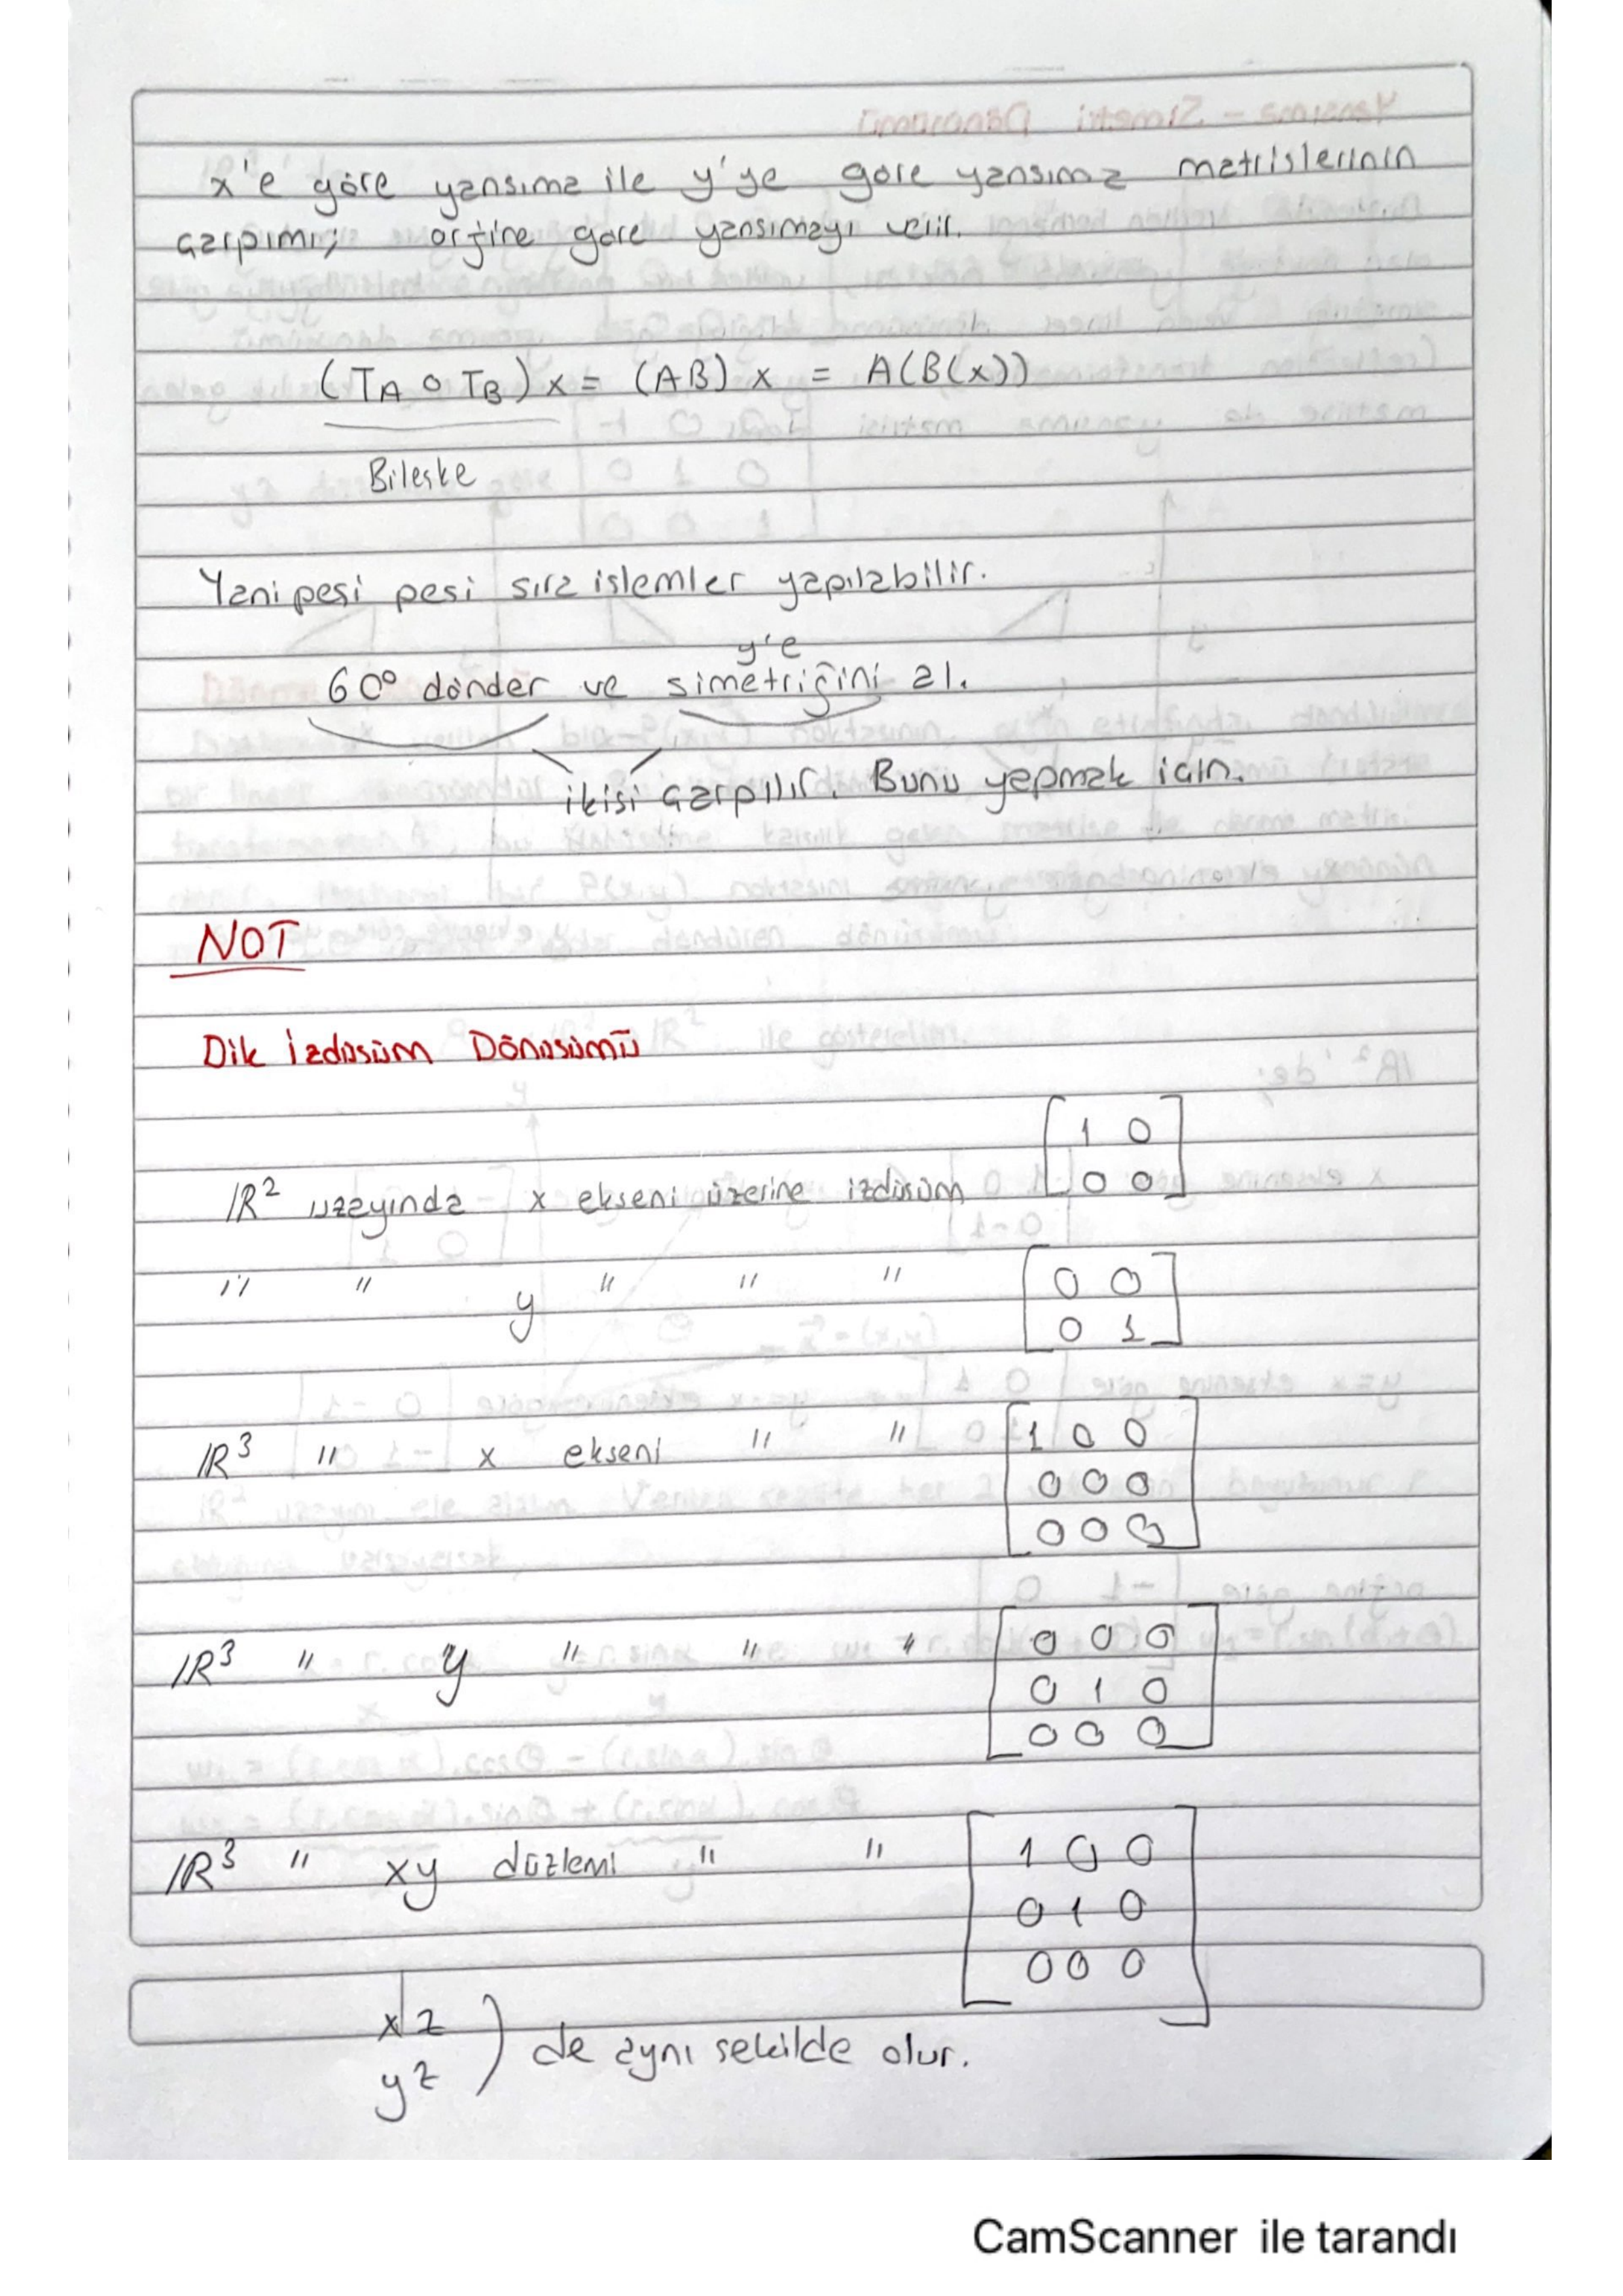 x'e göre yansıma ile y'ye göre yansıma matrislerinin
çarpımı; orjine göre yansımayı verir.
(TA o TB) x = (AB) x = A(B(x))
Bileşke
Yani peşi peşi sıra işlemler yapılabilir.
y'e
60° dönder ve simetriğini al.
ikisi çarpılır. Bunu yapmak için.
NOT
Dik İzdüşüm Dönüşümü
[1 0
IR² uzayında x ekseni üzerine izdüşüm 0 0]
" " y " " " [0 0
0 1]
IR³ " x ekseni " " [1 0 0
0 0 0
0 0 0]
IR³ " y " " " [0 0 0
0 1 0
0 0 0]
IR³ " xy düzlemi " " [1 0 0
0 1 0
0 0 0]
xz
yz ) de aynı şekilde olur.
CamScanner ile tarandı